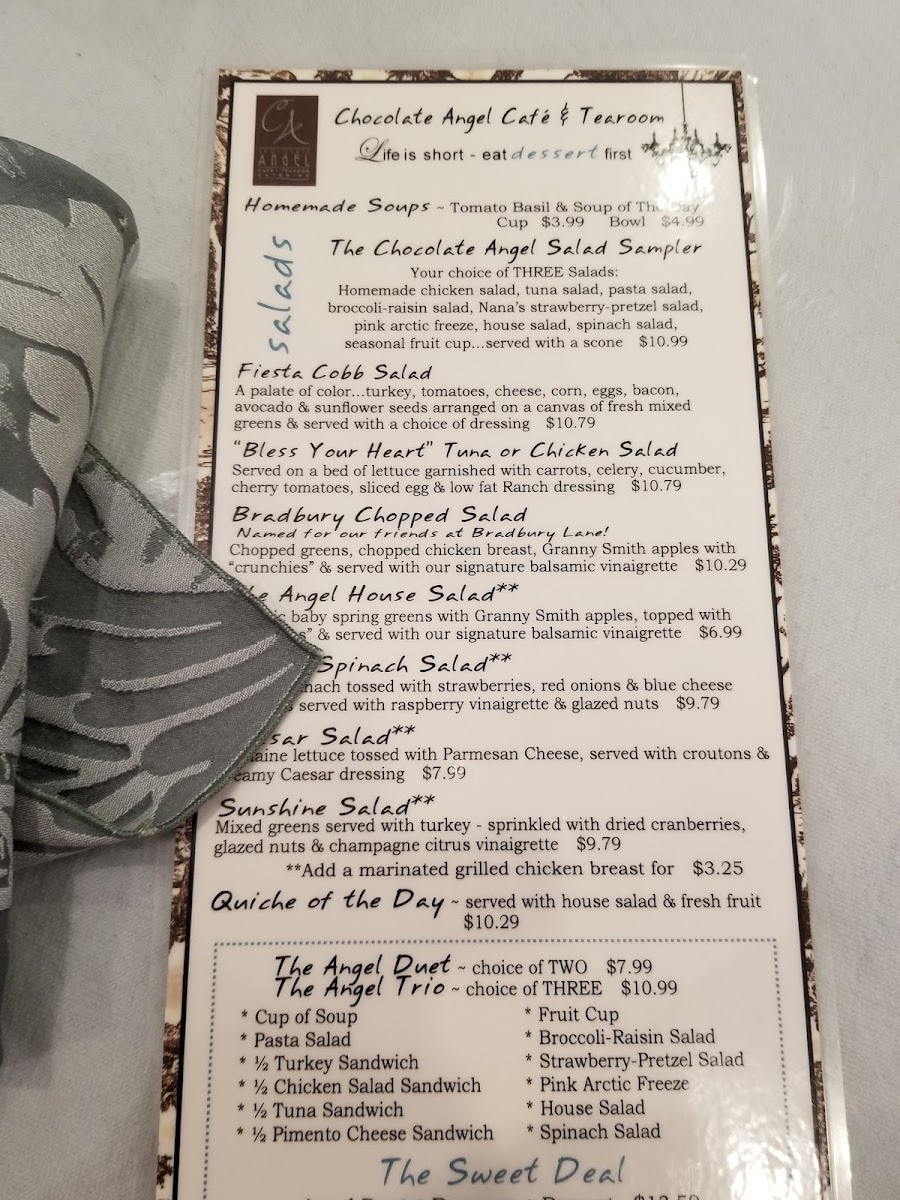 CA
ANGEL
Chocolate Angel Café & Tearoom
Life is short - eat dessert first
Homemade Soups ~ Tomato Basil & Soup of The Day
Cup $3.99 Bowl $4.99
salads
The Chocolate Angel Salad Sampler
Your choice of THREE Salads:
Homemade chicken salad, tuna salad, pasta salad,
broccoli-raisin salad, Nana's strawberry-pretzel salad,
pink arctic freeze, house salad, spinach salad,
seasonal fruit cup...served with a scone $10.99
Fiesta Cobb Salad
A palate of color...turkey, tomatoes, cheese, corn, eggs, bacon,
avocado & sunflower seeds arranged on a canvas of fresh mixed
greens & served with a choice of dressing $10.79
"Bless Your Heart" Tuna or Chicken Salad
Served on a bed of lettuce garnished with carrots, celery, cucumber,
cherry tomatoes, sliced egg & low fat Ranch dressing $10.79
Bradbury Chopped Salad
Named for our friends at Bradbury Lane!
Chopped greens, chopped chicken breast, Granny Smith apples with
"crunchies" & served with our signature balsamic vinaigrette $10.29
Angel House Salad**
baby spring greens with Granny Smith apples, topped with
& served with our signature balsamic vinaigrette $6.99
Spinach Salad**
tossed with strawberries, red onions & blue cheese
served with raspberry vinaigrette & glazed nuts $9.79
Salad**
lettuce tossed with Parmesan Cheese, served with croutons &
Caesar dressing $7.99
Sunshine Salad**
Mixed greens served with turkey - sprinkled with dried cranberries,
glazed nuts & champagne citrus vinaigrette $9.79
**Add a marinated grilled chicken breast for $3.25
Quiche of the Day ~ served with house salad & fresh fruit
$10.29
The Angel Duet ~ choice of TWO $7.99
The Angel Trio ~ choice of THREE $10.99
* Cup of Soup
* Pasta Salad
* ½ Turkey Sandwich
* ½ Chicken Salad Sandwich
* ½ Tuna Sandwich
* ½ Pimento Cheese Sandwich
* Fruit Cup
* Broccoli-Raisin Salad
* Strawberry-Pretzel Salad
* Pink Arctic Freeze
* House Salad
* Spinach Salad
The Sweet Deal